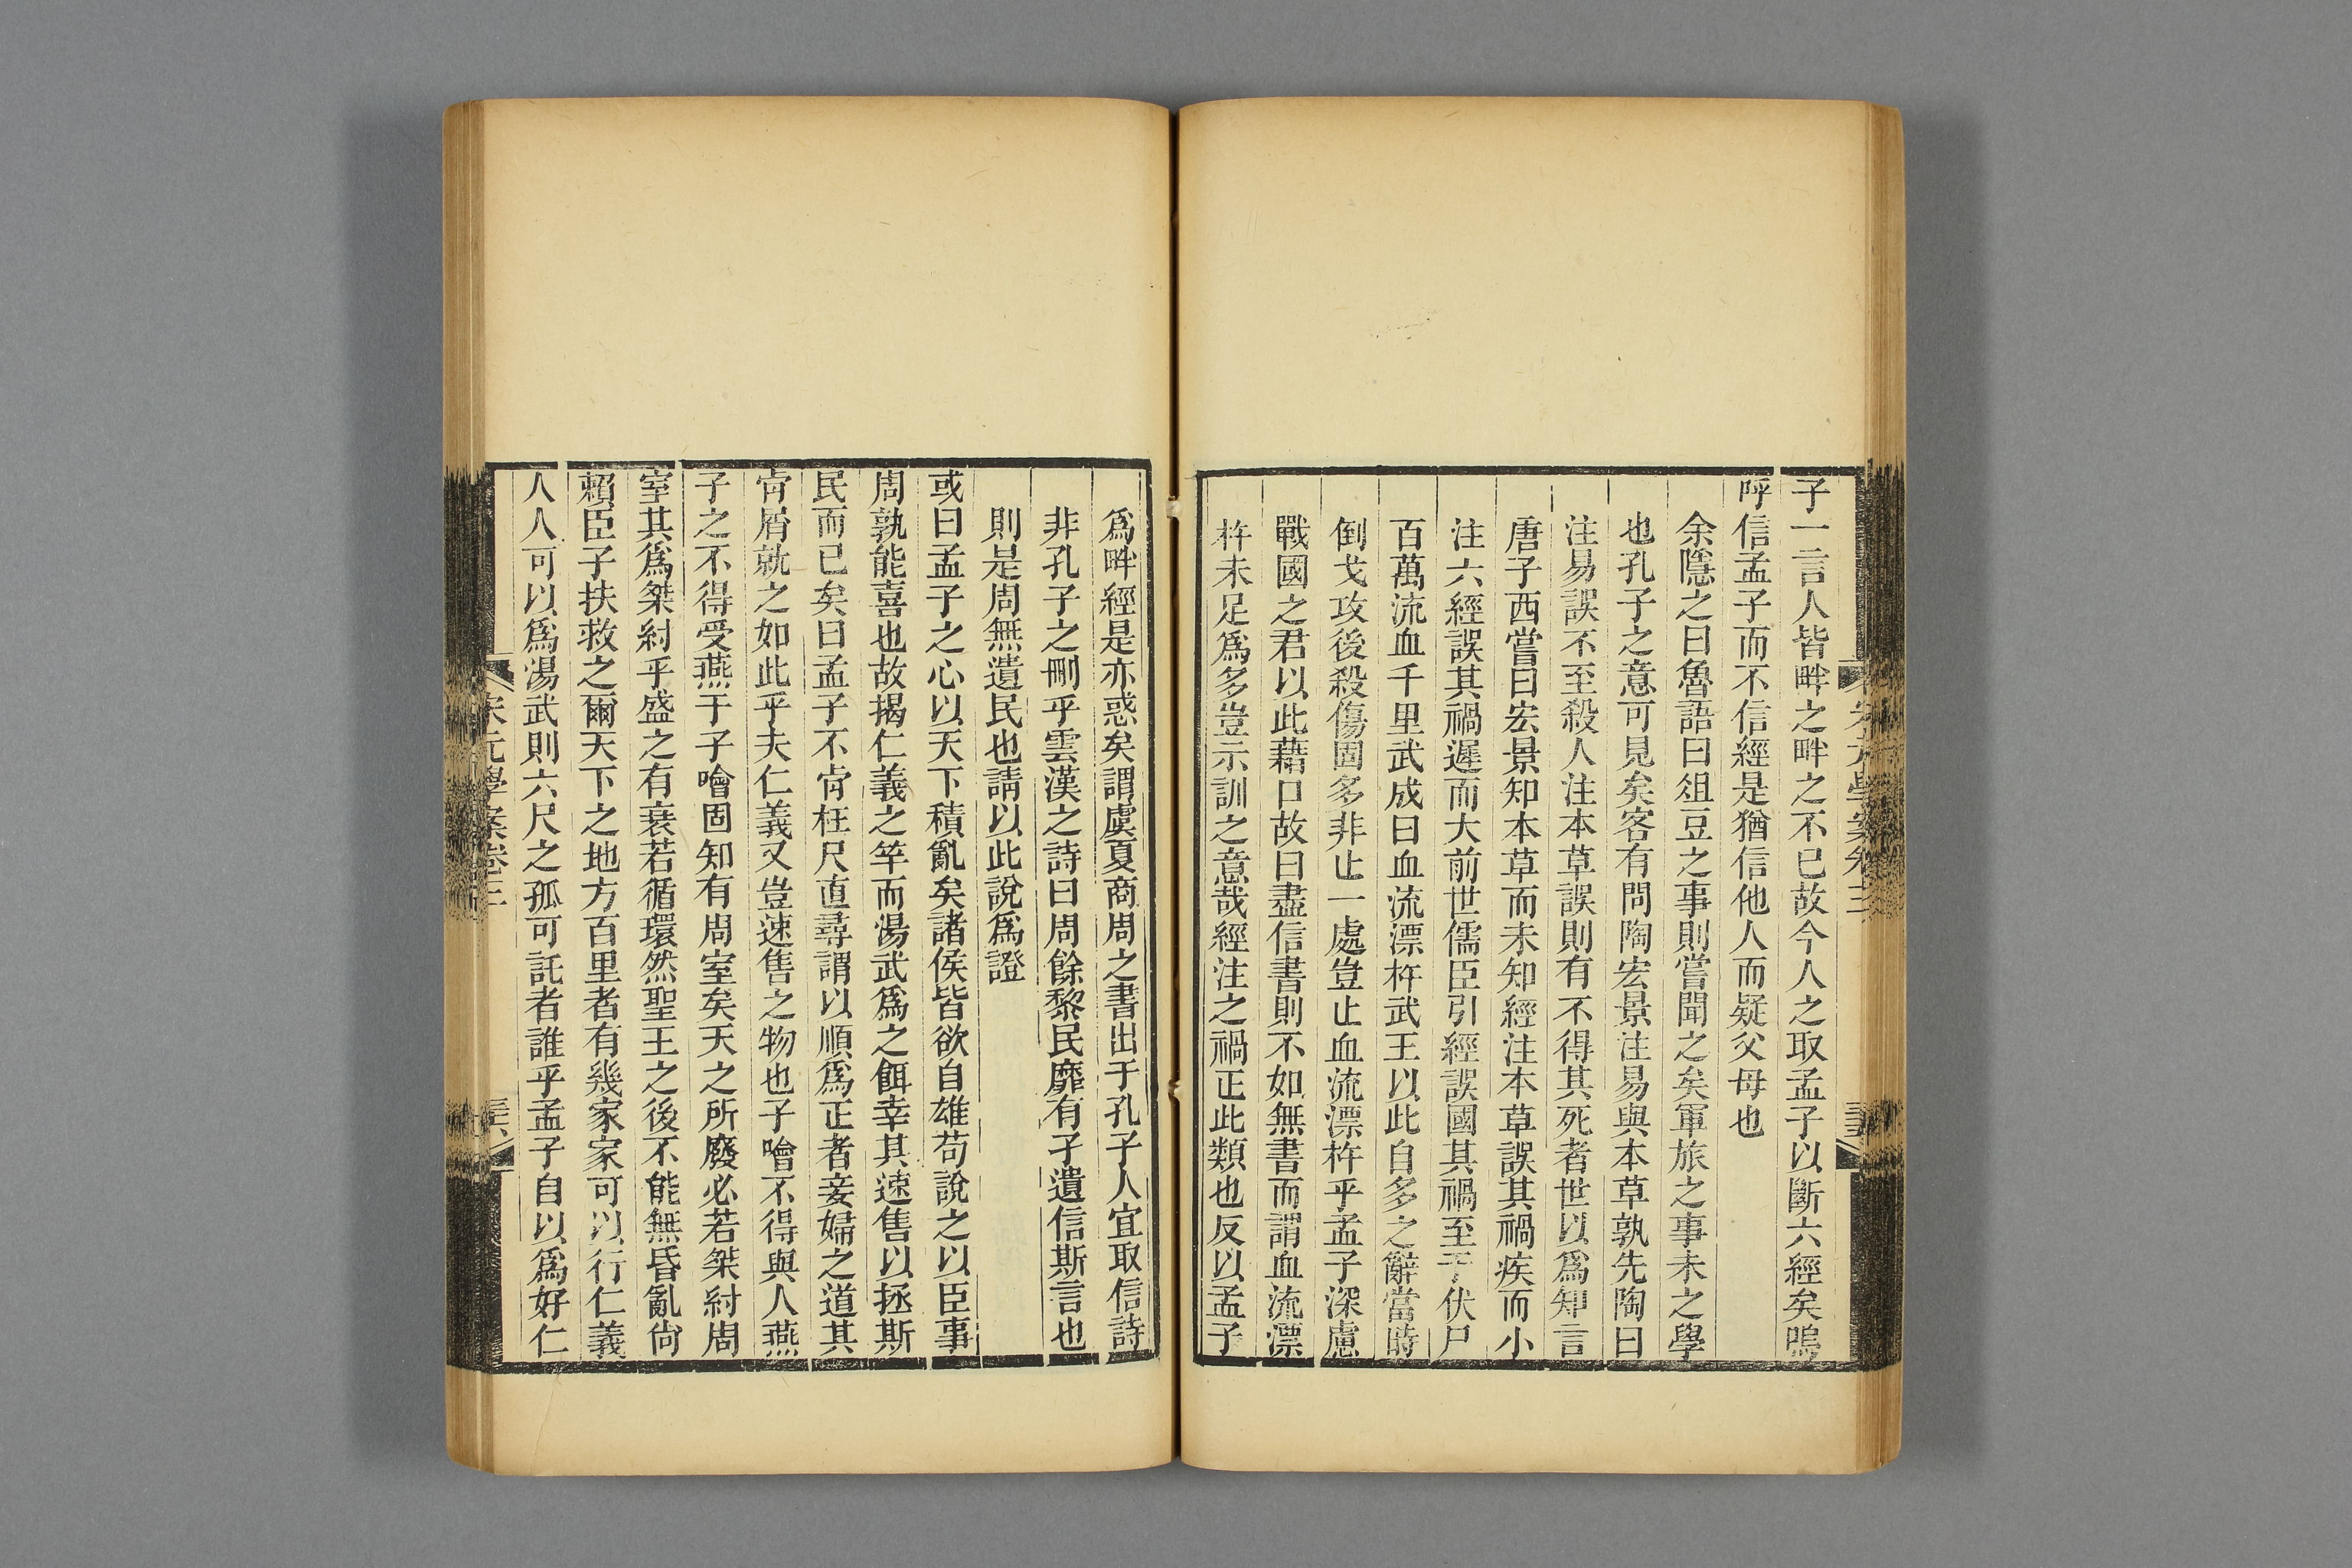 子一言人皆畔之畔之不已故今人之取孟子以斷六經矣嗚
呼信孟子而不信經是猶信他人而疑父母也
余隱之曰魯語曰俎豆之事則嘗聞之矣軍旅之事未之學
也孔子之意可見矣客有問陶宏景注易與本草孰先陶曰
注易誤不至殺人注本草誤則有不得其死者世以爲知言
唐子西嘗曰宏景知本草而未知經注本草誤其禍疾而小
注六經誤其禍遲而大前世儒臣引經誤國其禍至于伏尸
百萬流血千里武成曰血流漂杵武王以此自多之辭當時
倒戈攻後殺傷固多非止一處豈止血流漂杵乎孟子深慮
戰國之君以此藉口故曰盡信書則不如無書而謂血流漂
杵未足爲多豈示訓之意哉經注之禍正此類也反以孟子
爲畔經是亦惑矣謂虞夏商周之書出于孔子人宜取信詩
非孔子之刪乎雲漢之詩曰周餘黎民靡有孑遺信斯言也
則是周無遺民也請以此說爲證
或曰孟子之心以天下積亂矣諸侯皆欲自雄苟說之以臣事
周孰能喜也故揭仁義之竿而湯武爲之餌幸其速售以拯斯
民而已矣曰孟子不肯枉尺直尋謂以順爲正者妾婦之道其
肯屑就之如此乎夫仁義又豈速售之物也子噲不得與人燕
子之不得受燕于子噲固知有周室矣天之所廢必若桀紂周
室其爲桀紂乎盛之有衰若循環然聖王之後不能無昏亂尚
賴臣子扶救之爾天下之地方百里者有幾家家可以行仁義
人人可以爲湯武則六尺之孤可託者誰乎孟子自以爲好仁
宋元學案卷三